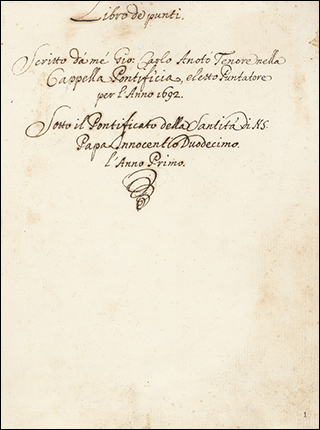 Libro de punti.
Scritto dà mé Gio: Carlo Anoto Tenore nella
Cappella Pontificia, eletto Puntatore
per l'Anno 1692.
Sotto il Pontificato della Santità di N.S.
Papa Innocentio Duodecimo.
l'Anno Primo.
1